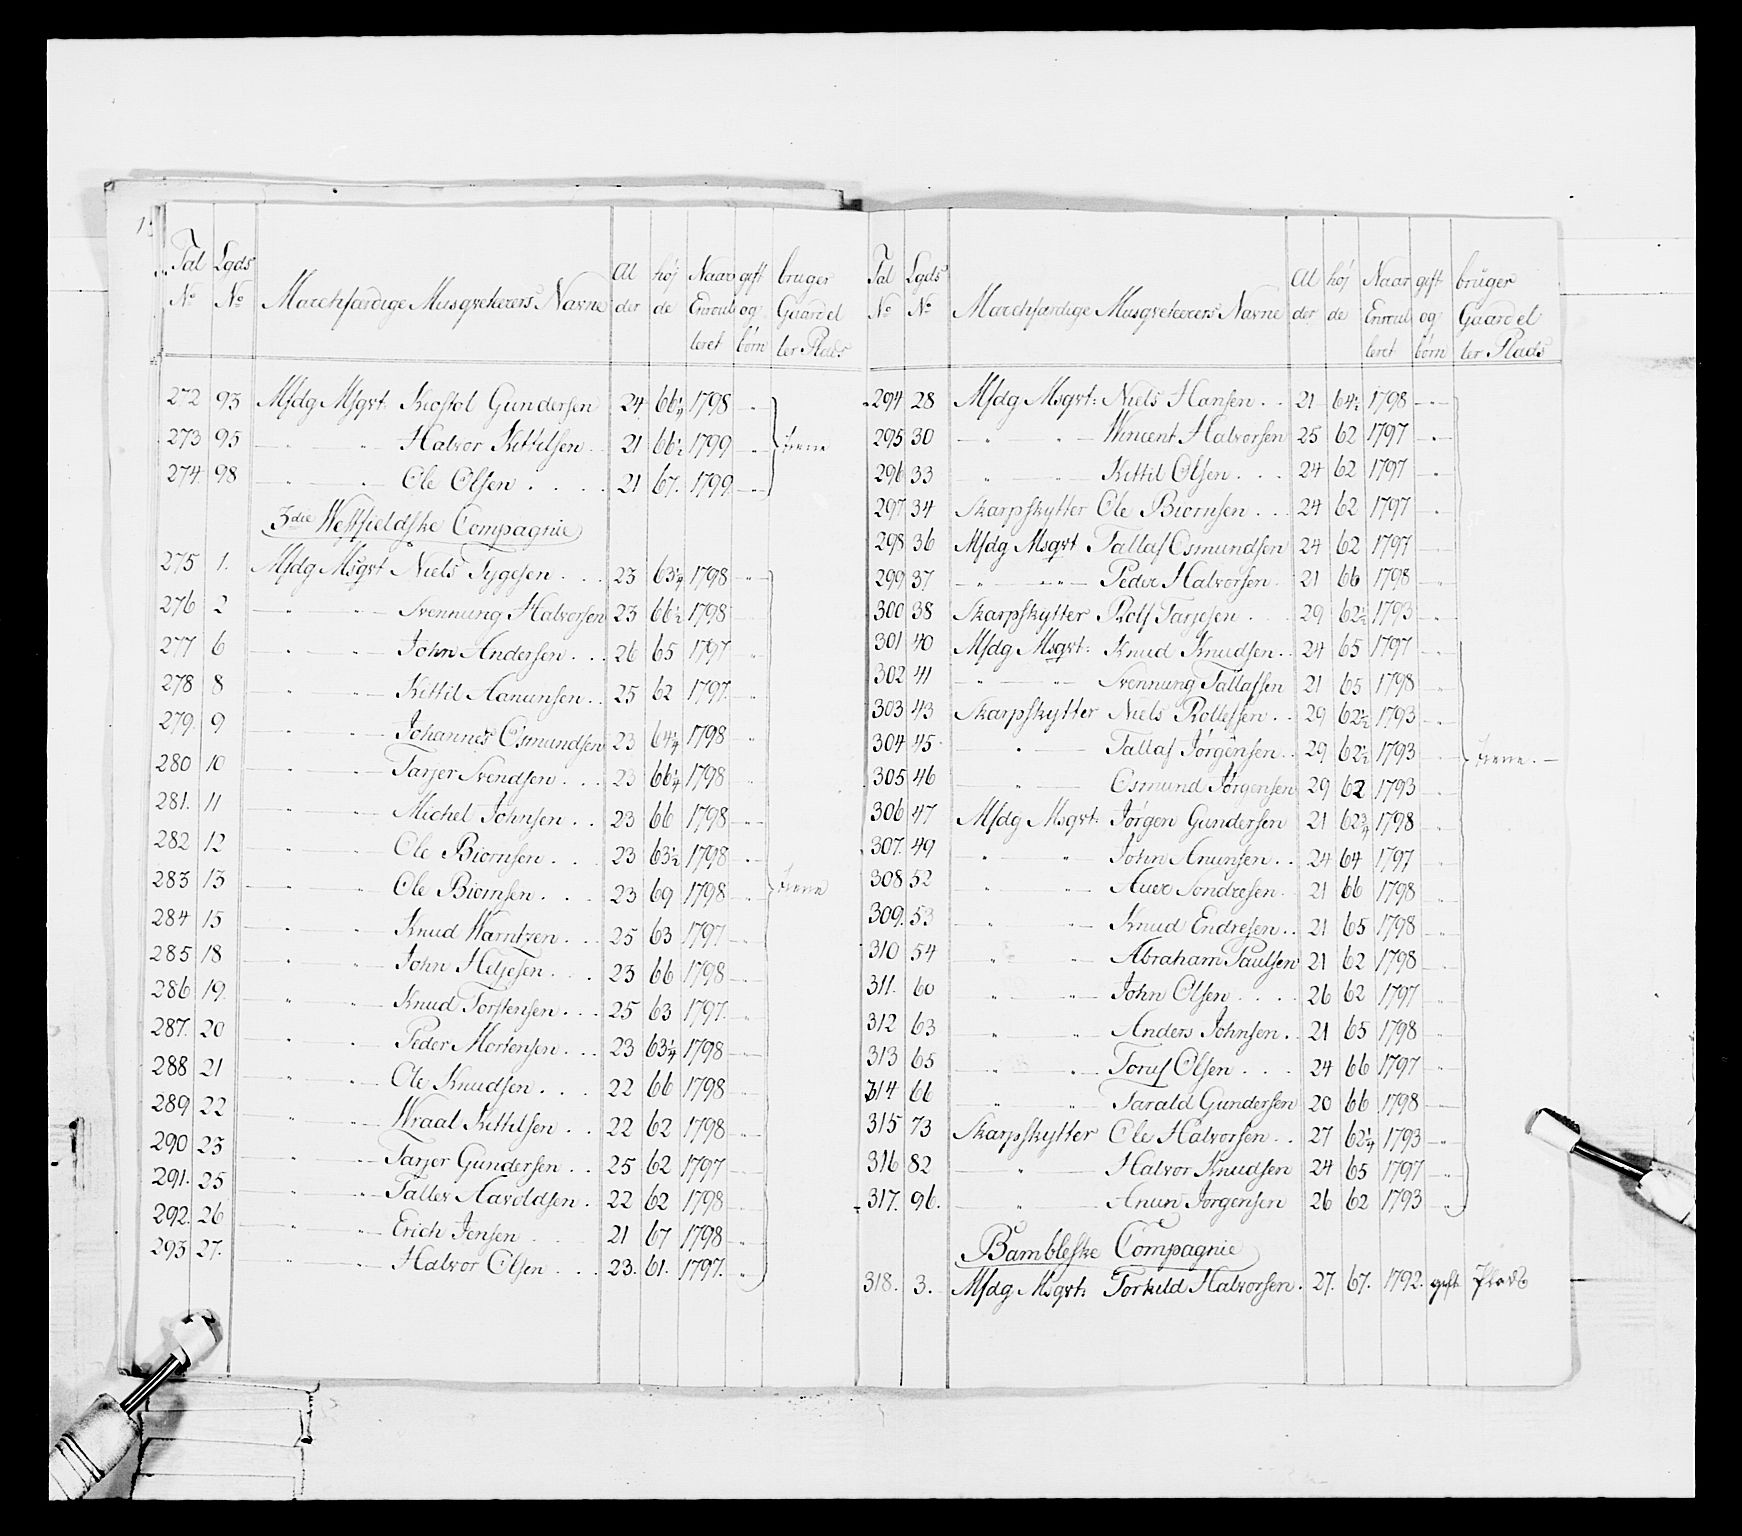 Tal Lgds Marchfærdige Musqveterers Navne Al høj Naar gift bruger
No No der de Enroul og Gaard el
leret børn ler Plads
272 93 Msdg Msqvt: Kiostol Gundersen 24 66¼ 1798 „
273 95 „ „ Halvor Kittilsen 21 66½ 1799 „
274. 98 „ „ Ole Olsen . . . 21 67. 1799. „
3die Westfieldske Compagnie
275 1. Msdg Msqvt Niels Tygesen . . . 23 63¼ 1798 „
276 2 „ „ Svennung Halvorsen 23 66½ 1798
277 6 „ „ John Andersen . . . 26 65 1797 „
278 8 „ „ Kittil Aanunsen . . 25 62 1797. „
279. 9 „ „ Johannes Osmundsen 23 64¼ 1798 „
280 10 „ „ Tarjer Svendsen . . . 23 66¼ 1798 „
281. 11 „ „ Michel Johnsen . . 23 66 1798 „
282 12 „ „ Ole Biornsen . . . 23 63½ 1798 „
283 13 „ „ Ole Biornsen . . . 23 69 1798 „
284 15 „ „ Knud Warntzen . . . 25 63 1797 „
285 18 „ „ John Heljesen . . . 23 66 1798 „
286 19. „ „ Knud Torstensen . . . 25 63 1797. „
287. 20 „ „ Peder Mortensen . . . 23 63¼ 1798 „
288 21 „ „ Ole Knudsen . . . 22 66 1798 „
289 22 „ „ Wraal Kittilsen . . 22 62 1798 „
290 23 „ „ Tarjer Gundersen . . 25 62 1797 „
291. 25 „ „ Tallev Aaroldsen . 22 62 1798 „
292. 26 „ „ Erich Jensen . . . 21 67 1798 „
293 27. „ „ Halvor Olsen . . . 23. 61. 1797. „
Tal Lgds Marchfærdige Musqveterers Navne Al høj Naar gift bruger
No No der de Enroul og Gaard el
leret børn ler Plads
294 28 Msdg Msqvt: Niels Hansen . . 21 64½ 1798 „
295 30 „ „ Wincent Halvorsen 25 62 1797 „
296 33 „ „ Kittil Olsen . . . 24 62 1797 „
297 34 Skarpskytter Ole Biornsen . . . 24 62 1797 „
298 36 Msdg Msqvt Tallaf Osmundsen 24 62 1797 „
299 37 „ „ Peder Halvorsen . 21 66 1798 „
300 38 Skarpskytter Rolf Tarjesen . . . 29 62½ 1793 „
301 40 Msdg Msqvt: Knud Knudsen . . 24 65 1797 „
302 41 „ „ Svennung Tallafsen 21 65 1798 „
303 43 Skarpskytter Niels Rollefsen . . 29 62½ 1793 „
304 45 „ Tallaf Jørgensen . . 29 62½ 1793 „
305 46 „ Osmund Jørgensen 29 62 1793 „
306 47 Msdg Msqvt: Jörgen Gundersen 21 62¾ 1798 „
307. 49 „ „ John Anunsen . . 24 64 1797 „
308 52 „ „ Auver Sondresen . 21 66 1798 „
309. 53 „ „ Knud Endresen . . 21 65 1798 „
310 54 „ „ Abraham Paulsen 21 62 1798 „
311. 60 „ „ John Olsen . . . . 26 62 1797 „
312 63 „ „ Anders Johnsen . 21 65 1798 „
313 65 „ „ Toruf Olsen . . . 24 66 1797 „
314 66 „ „ Tarald Gundersen 20 66 1798 „
315 73 Skarpskytter Ole Halvorsen . . 27 62¼ 1793 „
316 82 „ Halvor Knudsen 24 65 1797 „
317. 96. „ Anun Jorgensen 26 62 1793 „
Bambleske Compagnie
318. 3. Msdg Msqvt: Torkild Halvorsen . 27. 67. 1792. gift Plads